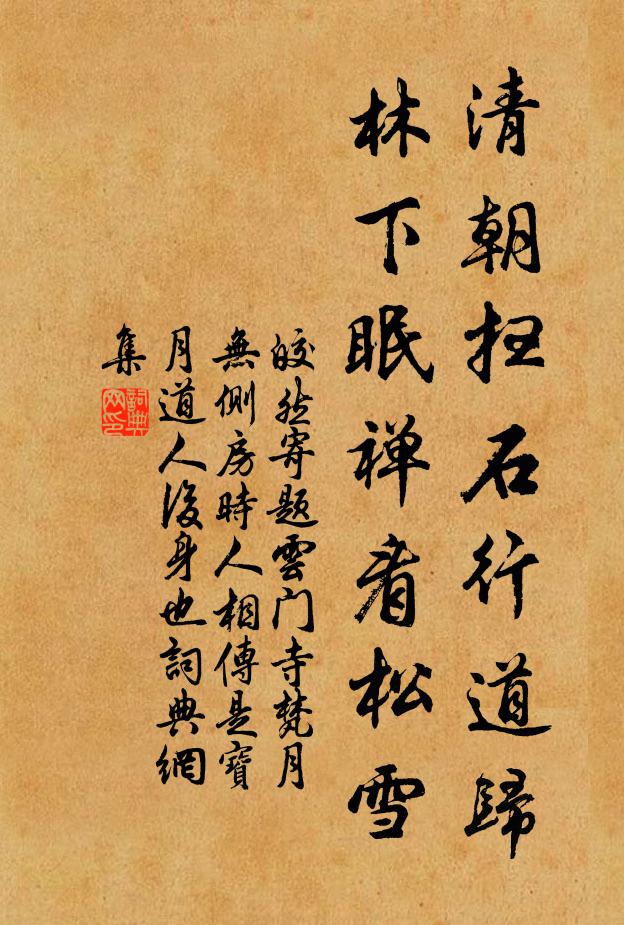 清朝扫石行道歸
林下眠禅看松雪
皎然寄题雲门寺梵月
無側房時人相傳是寶
月道人後身也詞典網
集
詞典網印